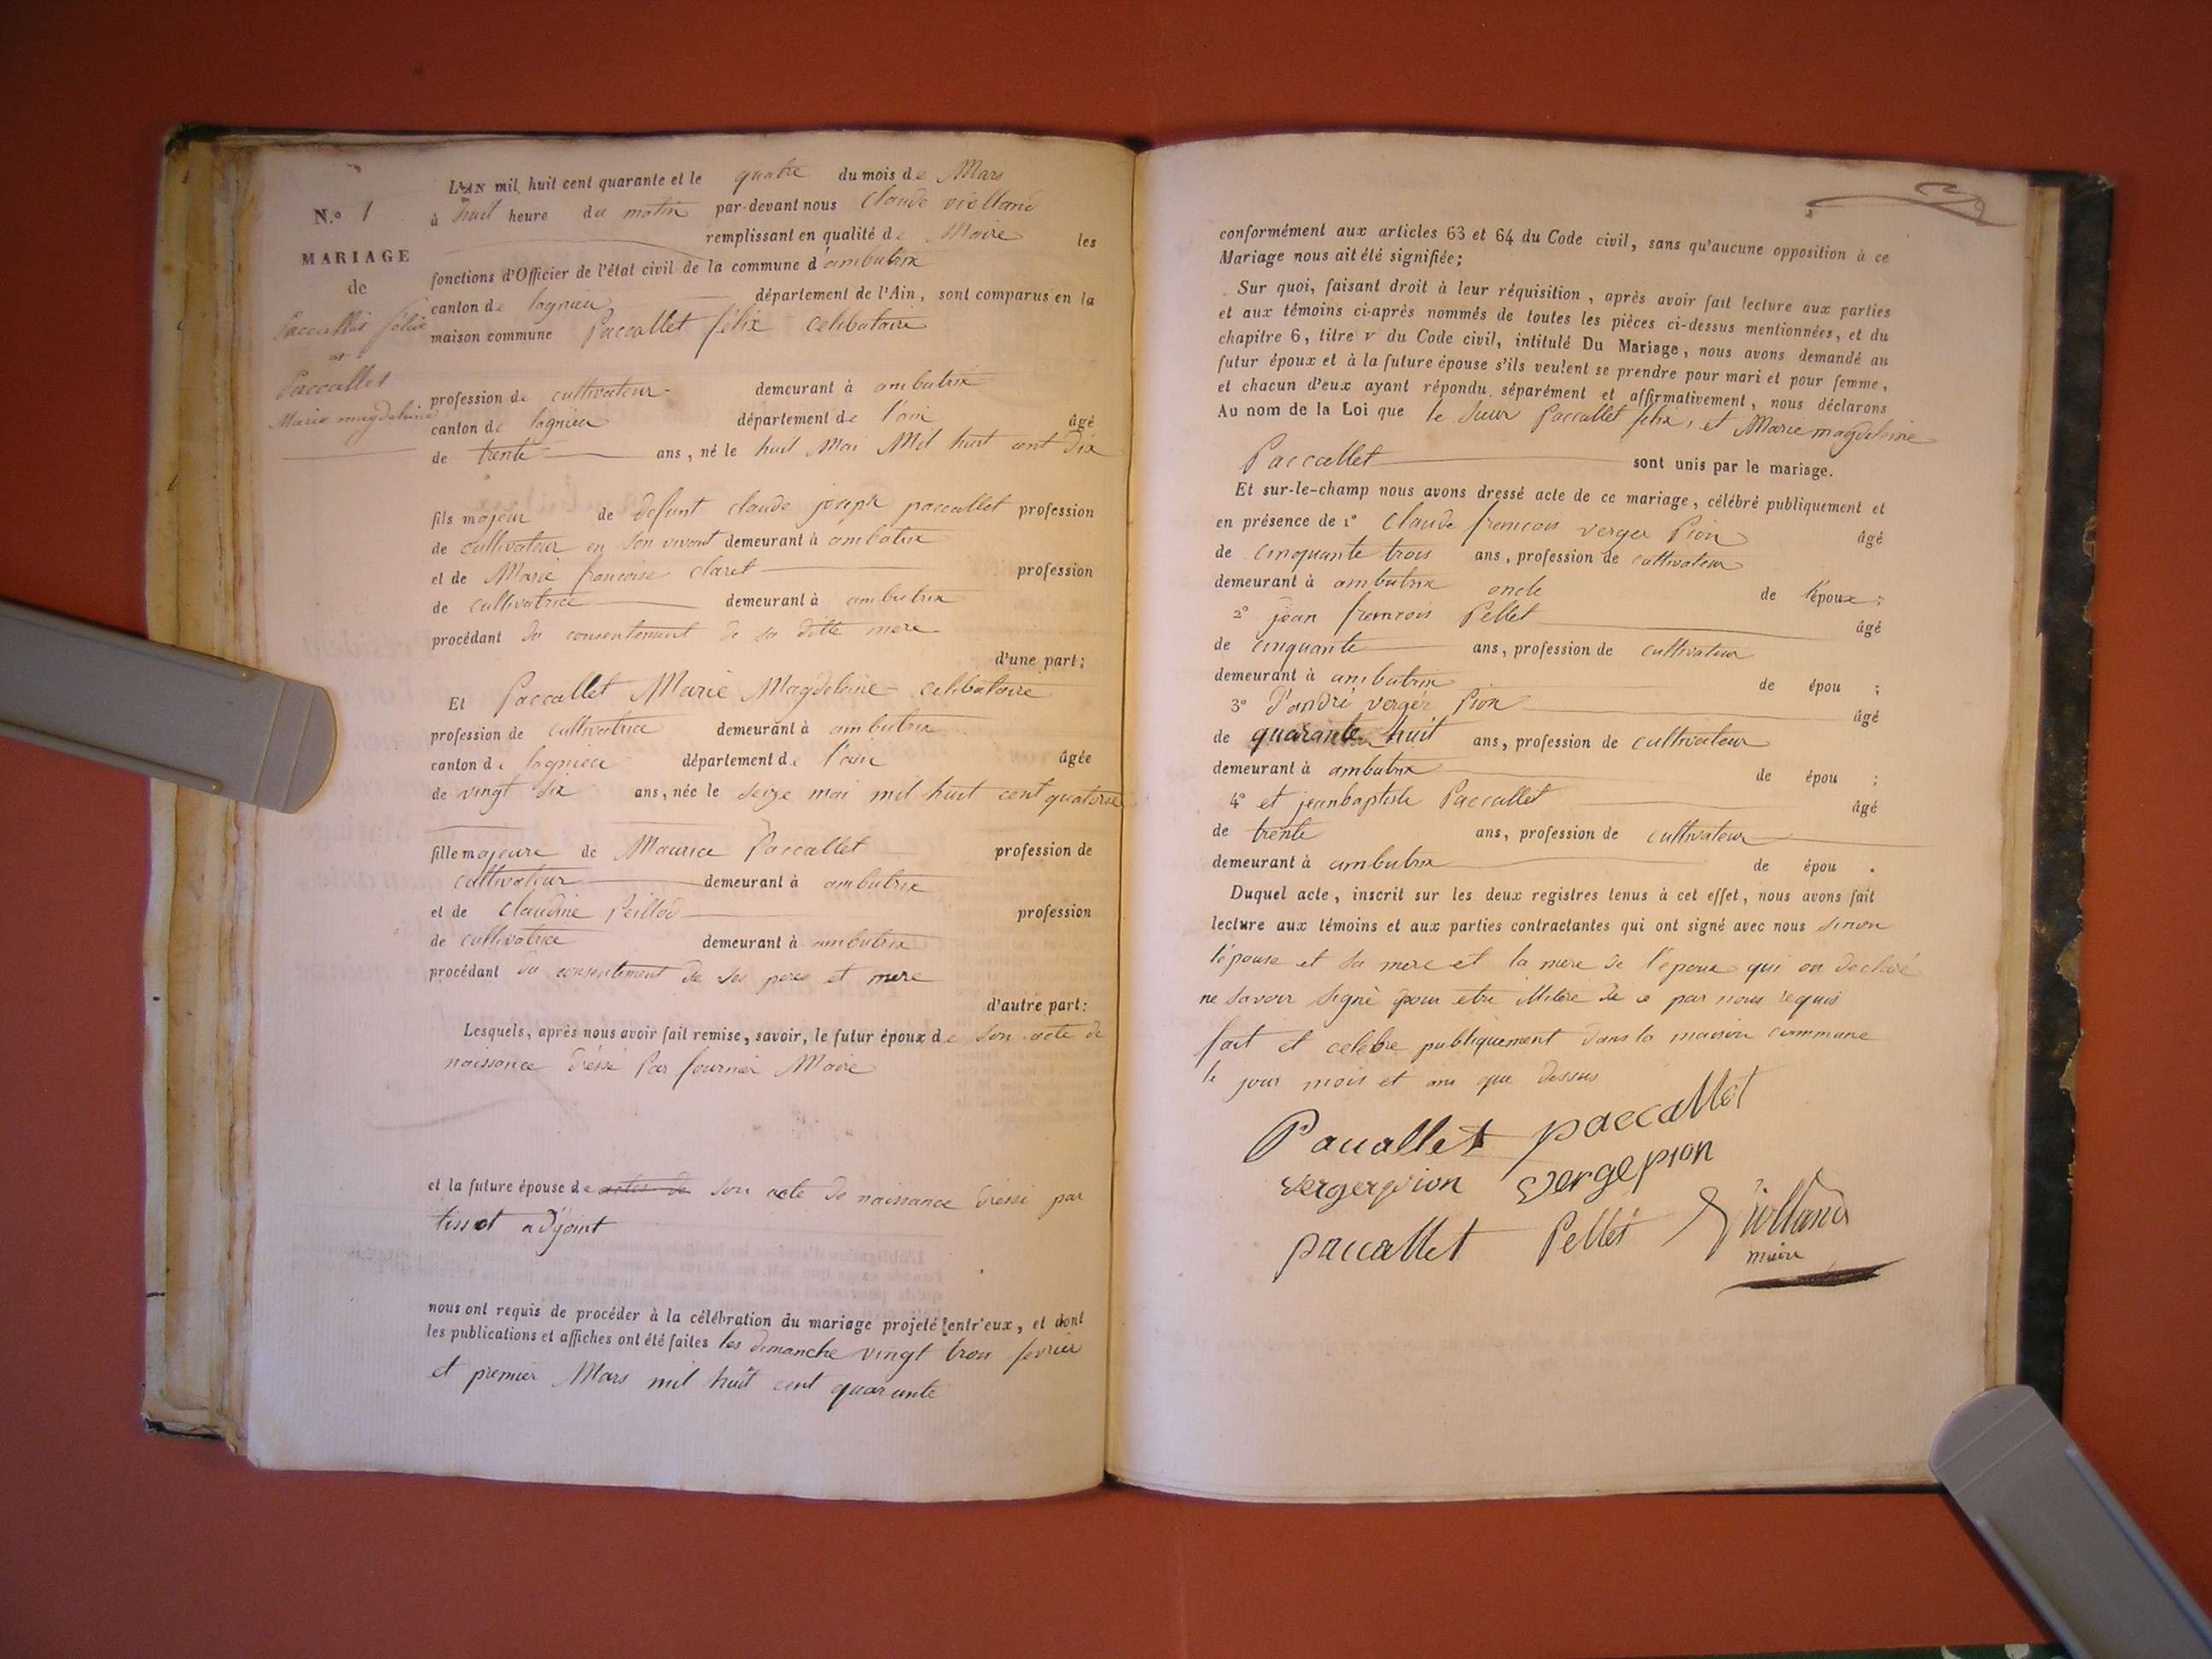 N.º 1
MARIAGE
de
Paccallet félix
et
Paccallet
Marie magdeleine
L'AN mil huit cent quarante et le quatre du mois de Mars
à huit heure du matin par-devant nous Claude violland
remplissant en qualité de Maire les
fonctions d'Officier de l'état civil de la commune d'ambutrix
canton de lagnieu département de l'Ain, sont comparus en la
maison commune Paccallet félix celibataire
profession de cultivateur demeurant à ambutrix
canton de lagnieu département de l'ain âgé
de trente ans, né le huit Mai Mil huit cent dix
fils majeur de defunt claude joseph paccallet profession
de cultivateur en son vivant demeurant à ambutrix
et de Marie francoise claret profession
de cultivatrice demeurant à ambutrix
procédant du consentement de sa ditte mere
d'une part;
Et Paccallet Marie Magdeleine celibataire
profession de cultivatrice demeurant à ambutrix
canton de lagnieu département de l'ain âgée
de vingt six ans, née le seize mai mil huit cent quatorse
fille majeure de Maurice Paccallet profession de
cultivateur demeurant à ambutrix
et de claudine Peillod profession
de cultivatrice demeurant à ambutrix
procédant du consentement de ses pere et mere
d'autre part:
Lesquels, après nous avoir fait remise, savoir, le futur époux de son acte de
naissance dréssé Par fournier Maire
et la future épouse de actes de son acte de naissance dréssé par
tissot adjoint
nous ont requis de procéder à la célébration du mariage projeté entr'eux, et dont
les publications et affiches ont été faites les dimanche vingt trois fevrier
et premier Mars mil huit cent quarante
conformément aux articles 63 et 64 du Code civil, sans qu'aucune opposition à ce
Mariage nous ait été signifiée;
Sur quoi, faisant droit à leur réquisition, après avoir fait lecture aux parties
et aux témoins ci-après nommés de toutes les pièces ci-dessus mentionnées, et du
chapitre 6, titre v du Code civil, intitulé Du Mariage, nous avons demandé au
futur époux et à la future épouse s'ils veulent se prendre pour mari et pour femme,
et chacun d'eux ayant répondu séparément et affirmativement, nous déclarons
Au nom de la Loi que le sieur Paccallet felix, et Marie magdeleine
Paccallet sont unis par le mariage.
Et sur-le-champ nous avons dressé acte de ce mariage, célébré publiquement et
en présence de 1º Claude francois verger Pion âgé
de cinquante trois ans, profession de cultivateur
demeurant à ambutrix oncle de l'époux;
2º jean francois Pellet âgé
de cinquante ans, profession de cultivateur
demeurant à ambutrix de épou ;
3º d'andré verger Pion âgé
de quarante huit ans, profession de cultivateur
demeurant à ambutrix de épou ;
4º et jeanbaptiste Paccallet âgé
de trente ans, profession de cultivateur
demeurant à ambutrix de épou .
Duquel acte, inscrit sur les deux registres tenus à cet effet, nous avons fait
lecture aux témoins et aux parties contractantes qui ont signé avec nous sinon
l'épouse et sa mere et la mere de l'époux qui on declaré
ne savoir signé pour etre de ce par nous requis
fait et celebre publiquement dans la maison commune
le jour mois et ans que dessus
Paccallet paccallet
vergerpion vergepion
paccallet Pellet Violland
maire